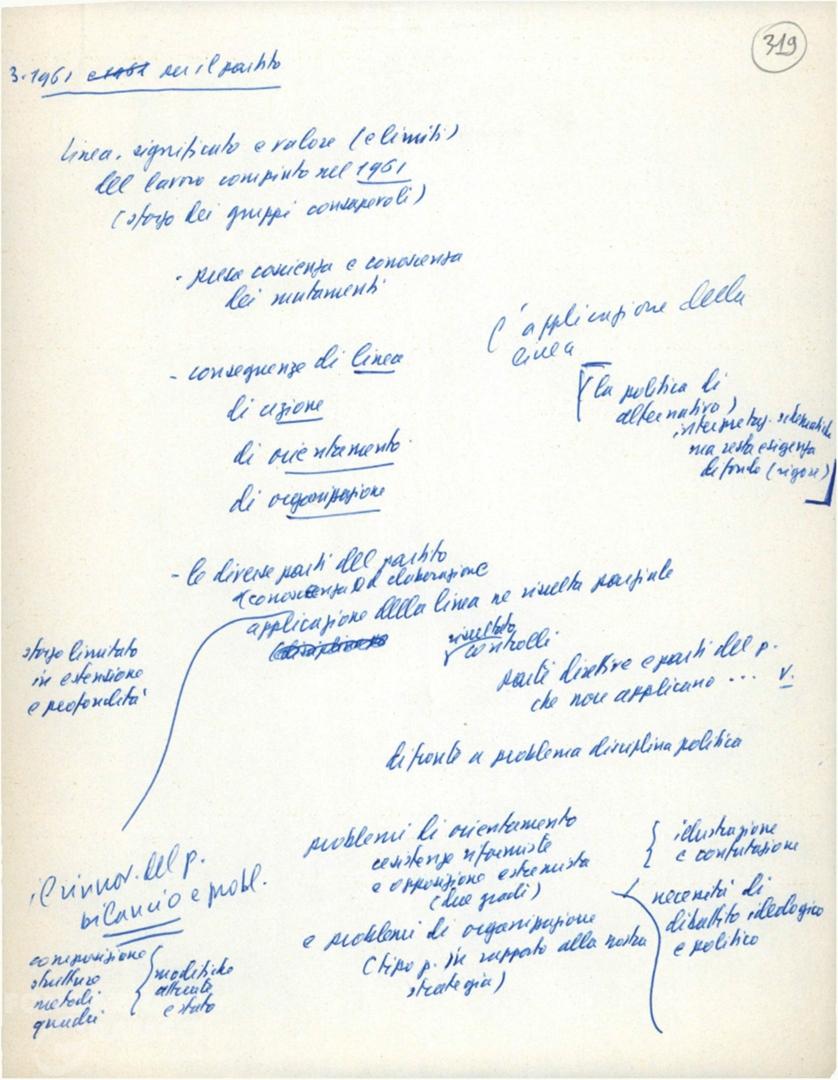 319
3. 1961 e 1962 su il partito
linea, significato e valore (e limiti)
del lavoro compiuto nel 1961
(sforzo dei gruppi consapevoli)
- presa coscienza e conoscenza
dei mutamenti
- conseguenze di linea
di azione
di orientamento
di organizzazione
L'applicazione della
linea
(la politica di
alternativa)
interpretaz. schematiche
ma resta esigenza
di fondo (rigore)
- le diverse parti del partito
(conoscenza ed elaborazione
applicazione della linea ne risulta parziale
(disciplina)
risultato
controlli
parti direttive e parti del p.
che non applicano ... v.
sforzo limitato
in estensione
e profondità
di fronte a problema disciplina politica
problemi di orientamento
resistenze riformiste
e opposizione estremista
(due gradi)
illustrazione
e confutazione
necessità di
dibattito ideologico
e politico
e problemi di organizzazione
(tipo p. in rapporto alla nostra
strategia)
il rinnov. del p.
bilancio e probl.
composizione
strutture
metodi
quadri
modifiche
attuate
e stato